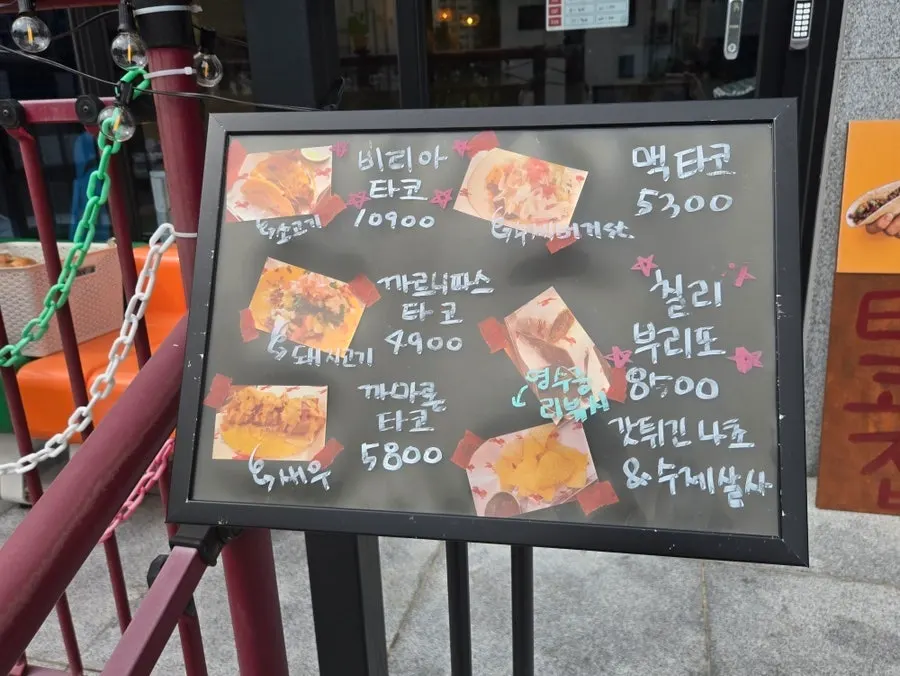 비리아
타코
10900
소고기
맥타코
5300
까르니따스
타코
4900
돼지고기
칠리
부리또
8500
영수증
리뷰시
까마론
타코
5800
새우
갓튀긴 나쵸
&수제살사